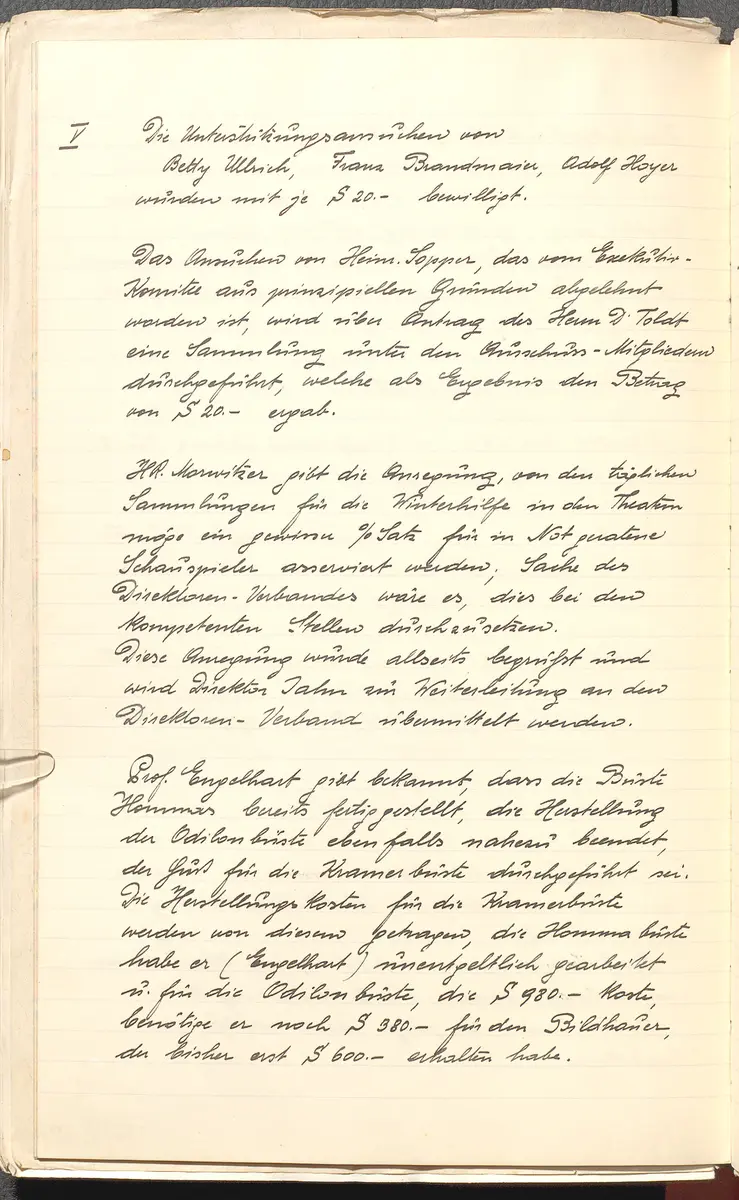 V Die Unterstützungsansuchen von
Betty Ullrich, Franz Brandmaier, Adolf Hoyer
wurden mit je S 20.- bewilligt.
Das Ansuchen von Heinr. Sopper, das vom Exekutiv-
Komitee aus prinzipiellen Gründen abgelehnt
worden ist, wird über Antrag des Herrn Dr Toldt
eine Sammlung unter den Ausschuss-Mitgliedern
durchgeführt, welche als Ergebnis den Betrag
von S 20.- ergab.
HR. Morwitzer gibt die Anregung, von den täglichen
Sammlungen für die Winterhilfe in den Theatern
möge ein gewisser % Satz für in Not geratene
Schauspieler asserviert werden; Sache des
Direktoren-Verbandes wäre es, dies bei den
kompetenten Stellen durchzusetzen.
Diese Anregung wurde allseits begrüßt und
wird Direktor Jahn zur Weiterleitung an den
Direktoren-Verband übermittelt werden.
Prof. Engelhart gibt bekannt, dass die Büste
Hommas bereits fertiggestellt, die Herstellung
der Odilonbüste ebenfalls nahezu beendet,
der Guß für die Kramerbüste durchgeführt sei.
Die Herstellungskosten für die Kramerbüste
werden von diesem getragen, die Homma büste
habe er (Engelhart) unentgeltlich gearbeitet
u. für die Odilonbüste, die S 980.- koste,
benötige er noch S 380.- für den Bildhauer,
der bisher erst S 600.- erhalten habe.